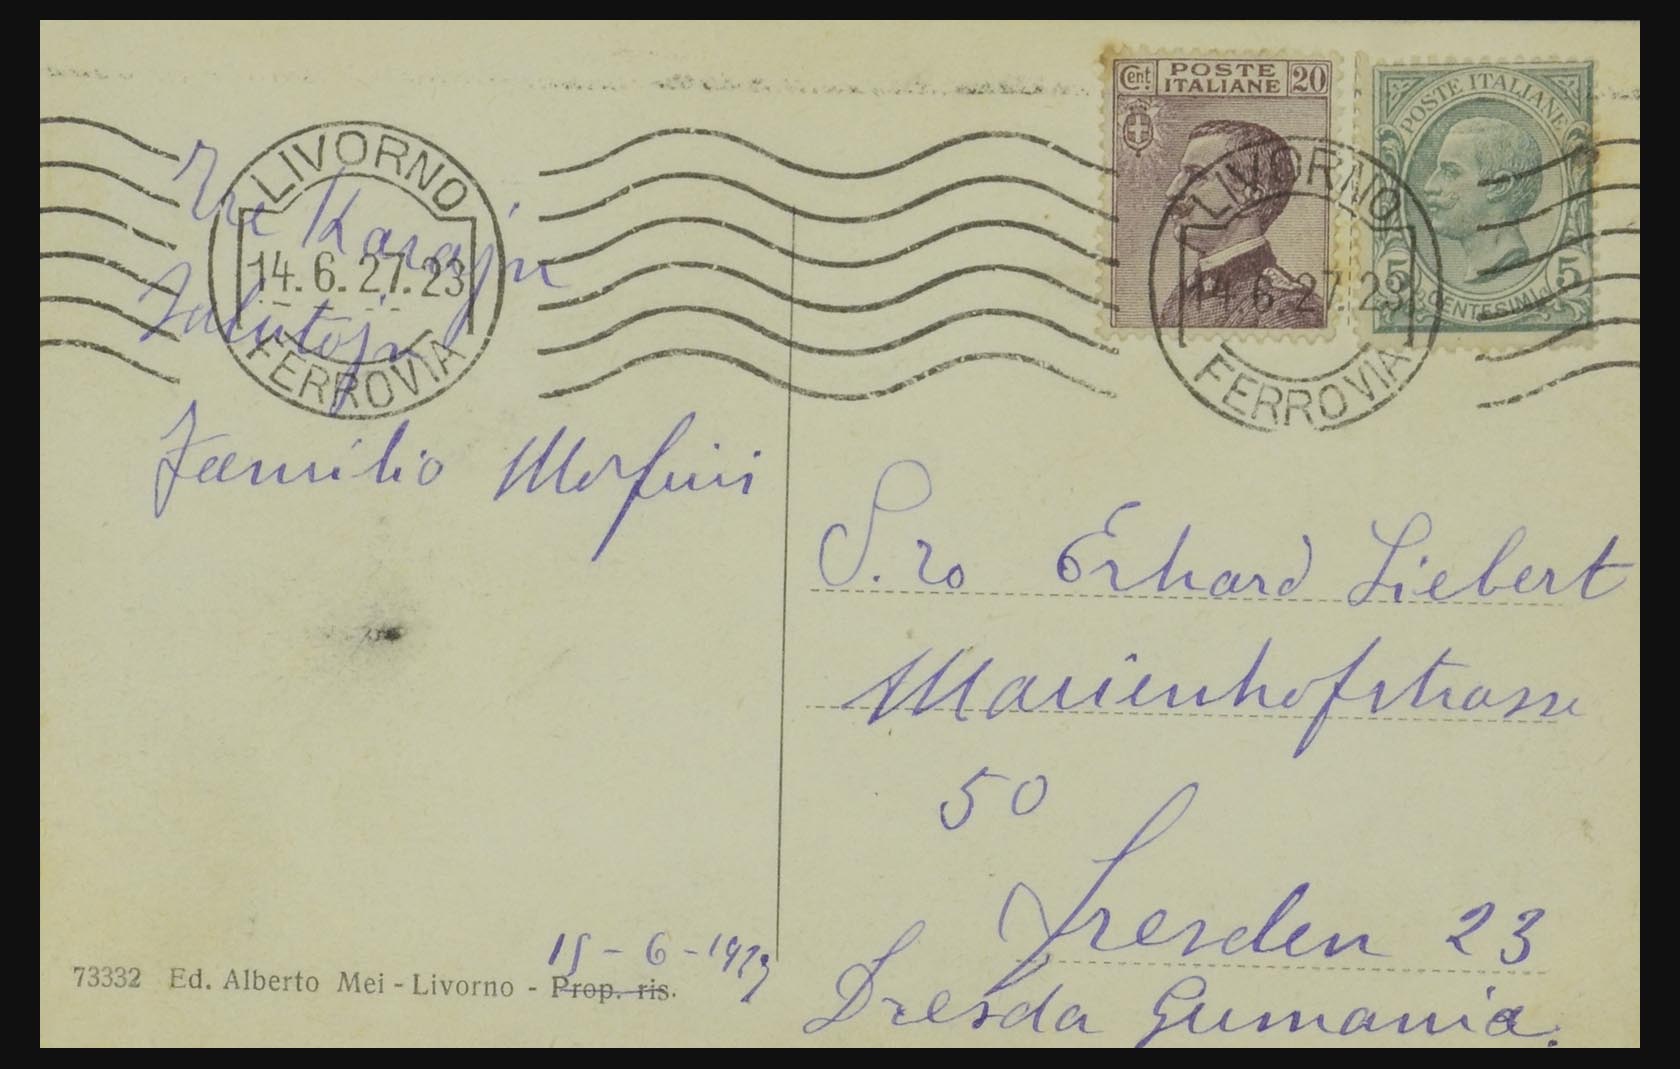 Cent. POSTE ITALIANE 20
POSTE ITALIANE
5 CENTESIMI 5
LIVORNO
14.6.27.23
FERROVIA
LIVORNO
14.6.27.23
FERROVIA
Tre Karajn
Salutojn
Familio Morfini
S.ro Erhard Liebert
Marienhofstrasse
50
Dresden 23
Dresda Germania.
15-6-1927
73332 Ed. Alberto Mei - Livorno - Prop. ris.